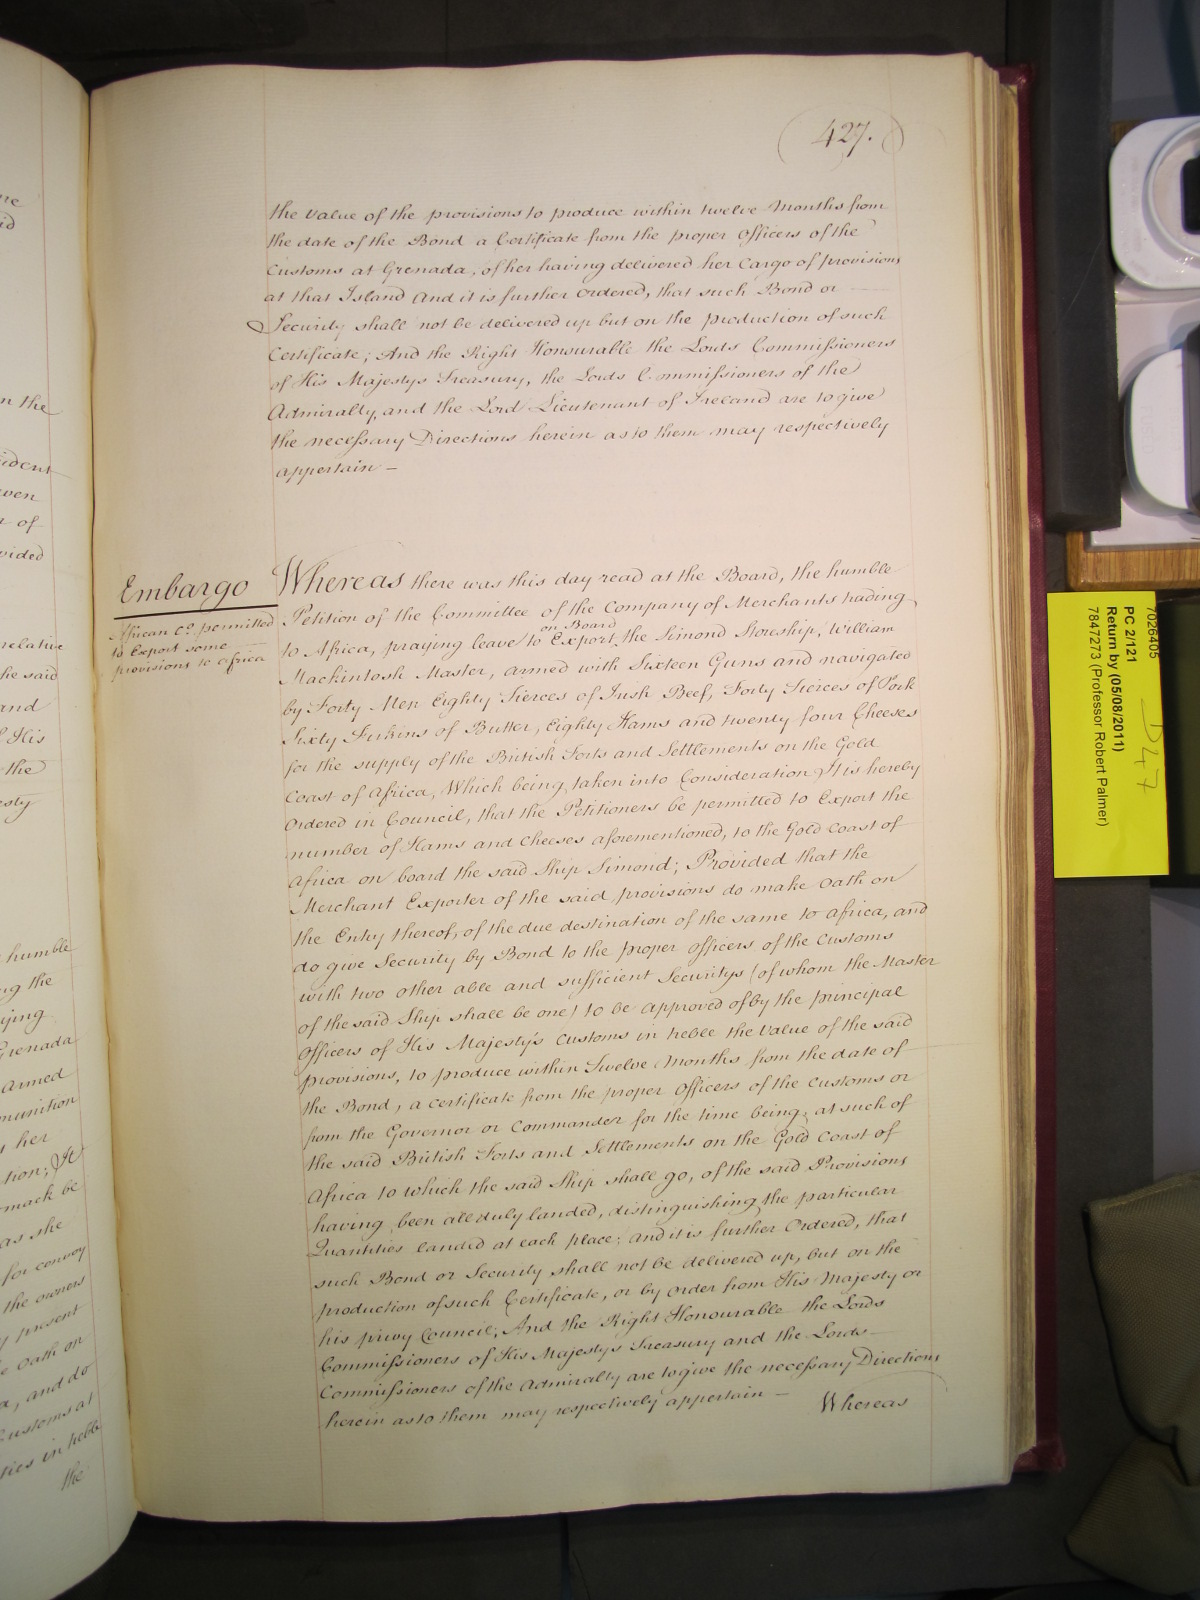 427.
the value of the provisions to produce within twelve Months from
the date of the Bond a Certificate from the proper Officers of the
Customs at Grenada, of her having delivered her Cargo of provisions
at that Island And it is further Ordered, that such Bond or
Security shall not be delivered up but on the production of such
Certificate; And the Right Honourable the Lords Commissioners
of His Majestys Treasury, the Lords Commissioners of the
Admiralty, and the Lord Lieutenant of Ireland are to give
the necessary Directions herein as to them may respectively
appertain —
Embargo
African Co. permitted
to Export some
provisions to Africa
Whereas there was this day read at the Board, the humble
Petition of the Committee of the Company of Merchants trading
to Africa, praying leave to Export on Board the Simond Storeship, William
Mackintosh Master, armed with Sixteen Guns and navigated
by Forty Men Eighty Tierces of Irish Beef, Forty Tierces of Pork
Sixty Firkins of Butter, Eighty Hams and twenty four Cheeses
for the supply of the British Forts and Settlements on the Gold
Coast of Africa, Which being taken into Consideration, It is hereby
Ordered in Council, that the Petitioners be permitted to Export the
number of Hams and Cheeses aforementioned, to the Gold Coast of
Africa on board the said Ship Simond; Provided that the
Merchant Exporter of the said provisions do make Oath on
the Entry thereof, of the due destination of the same to Africa, and
do give Security by Bond to the proper Officers of the Customs
with two other able and sufficient Securitys (of whom the Master
of the said Ship shall be one) to be approved of by the principal
Officers of His Majesty's Customs in treble the value of the said
provisions, to produce within Twelve Months from the date of
the Bond, a certificate from the proper Officers of the Customs or
from the Governor or Commander for the time being, at such of
the said British Forts and Settlements on the Gold Coast of
Africa to which the said Ship shall go, of the said Provisions
having been all duly landed, distinguishing the particular
Quantities landed at each place; and it is further Ordered, that
such Bond or Security shall not be delivered up, but on the
production of such Certificate, or by order from His Majesty or
his privy Council; And the Right Honourable the Lords
Commissioners of His Majestys Treasury and the Lords
Commissioners of the Admiralty are to give the necessary Directions
herein as to them may respectively appertain —
Whereas
n the
ident
of
relative
he said
and
His
the
humble
ng the
Grenada
armed
her
tion; It
mack be
as she
for convoy
the owners
present
Oath on
and do
Customs at
ties in treble
the
7026405
PC 2/121
Return by (05/08/2011)
7847273 (Professor Robert Palmer)
D47